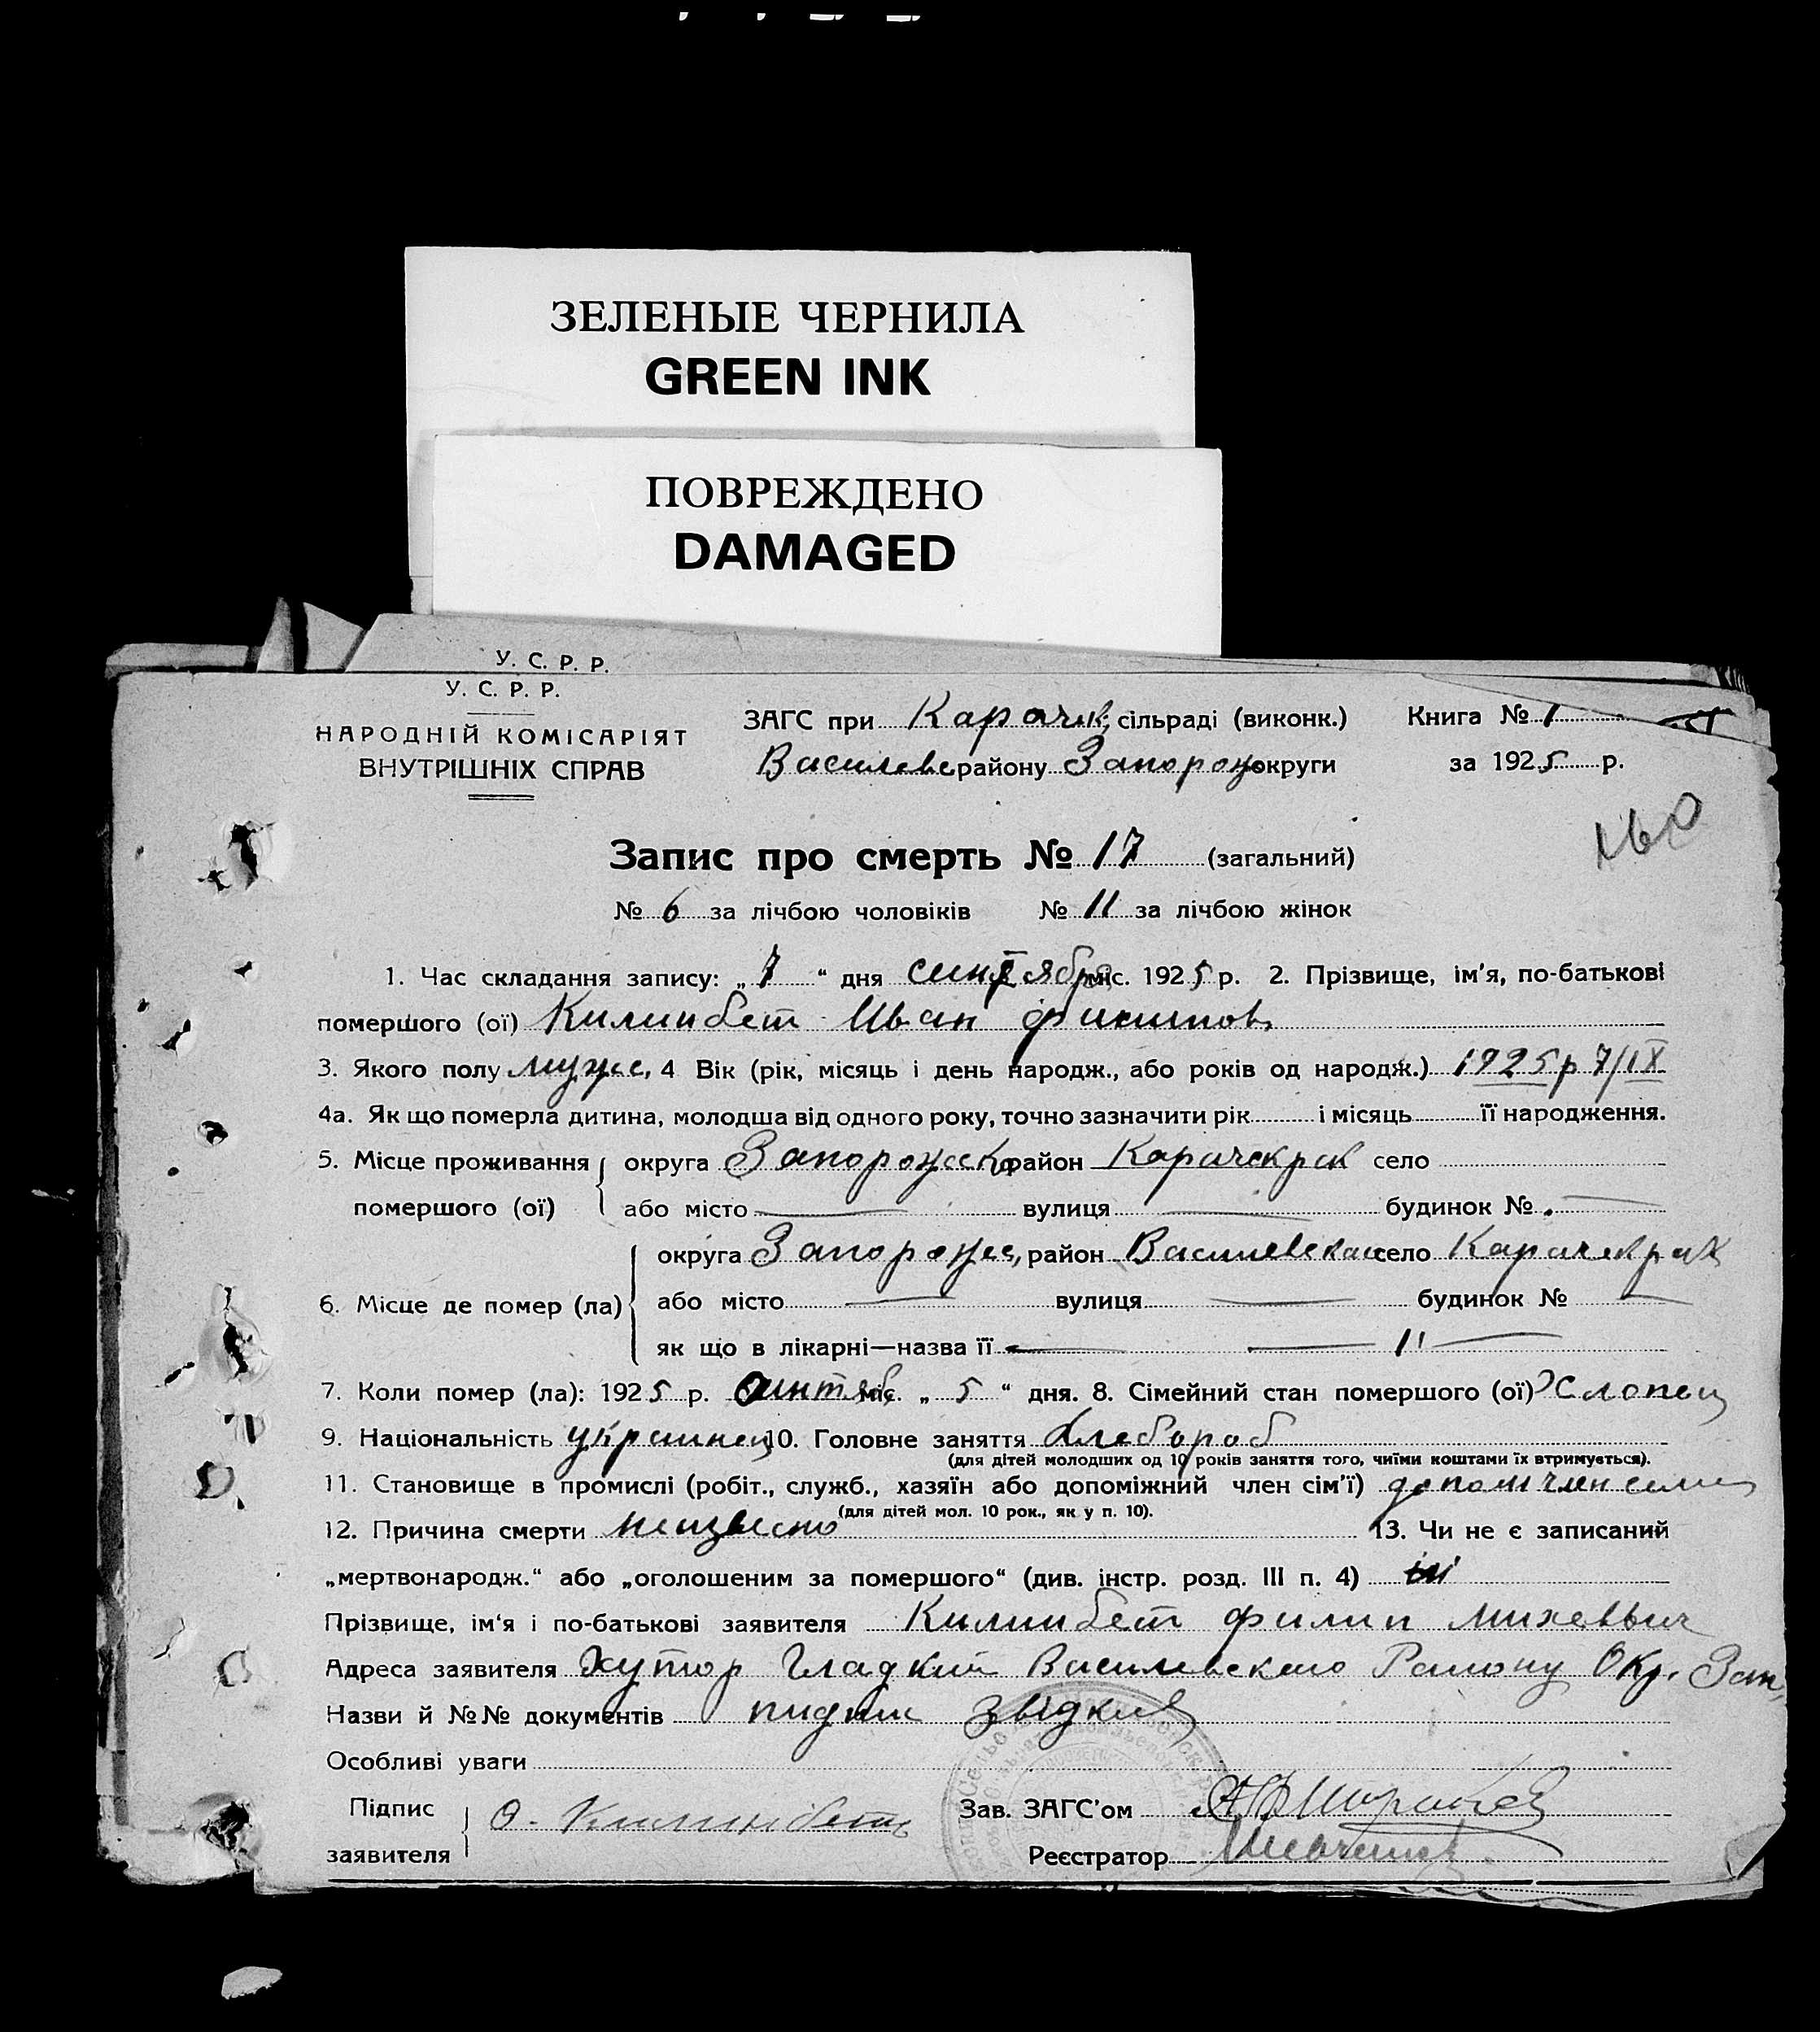 ЗЕЛЕНЫЕ ЧЕРНИЛА
GREEN INK
ПОВРЕЖДЕНО
DAMAGED
У. С. Р. Р.
У. С. Р. Р.
НАРОДНІЙ КОМІСАРІЯТ
ВНУТРІШНІХ СПРАВ
ЗАГС при Карачек. сільраді (виконк.) Книга № 1
Василевс району Запорож округи за 1925 р.
160
Запис про смерть № 17 (загальний)
№ 6 за лічбою чоловіків № 11 за лічбою жінок
1. Час складання запису: „ 7 “ дня сентября міс. 1925 р. 2. Прізвище, ім'я, по-батькові
помершого (ої) Килимбет Иван Филипов
3. Якого полу мужс, 4 Вік (рік, місяць і день народж., або років од народж.) 1925 р 7/IX
4а. Як що померла дитина, молодша від одного року, точно зазначити рік і місяць її народження.
5. Місце проживання округа Запорожско район Карачекрак село
помершого (ої) або місто — вулиця — будинок № —
округа Запорожс, район Василевскаи село Карачекрак
6. Місце де помер (ла) або місто — вулиця — будинок № —
як що в лікарні—назва її — — 11 —
7. Коли помер (ла): 1925 р. синтяб міс. „ 5 “ дня. 8. Сімейний стан помершого (ої) Хлопец
9. Національність украинец 10. Головне заняття Хлебороб
(для дітей молодших од 10 років заняття того, чиїми коштами їх втримується).
11. Становище в промислі (робіт., служб., хазяїн або допоміжний член сім'ї) допом член семи
(для дітей мол. 10 рок., як у п. 10).
12. Причина смерти неизвесно 13. Чи не є записаний
„мертвонародж.“ або „оголошеним за помершого“ (див. інстр. розд. III п. 4)
Прізвище, ім'я і по-батькові заявителя Килимбет Филип Михеевич
Адреса заявителя Хутор Гладкий Василевского Району Окр. Зап,
Назви й №№ документів звідків
Особливі уваги
Підпис Ѳ. Килимбетъ Зав. ЗАГС'ом
заявителя Реєстратор